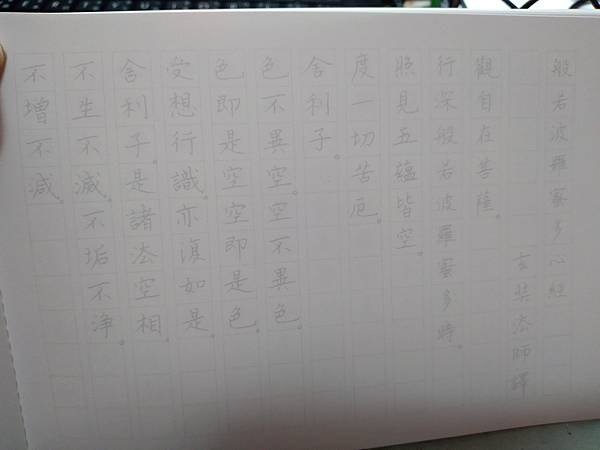 般若波羅蜜多心經
玄奘法師譯
觀自在菩薩。
行深般若波羅蜜多時。
照見五蘊皆空。
度一切苦厄。
舍利子。
色不異空。空不異色。
色即是空空即是色。
受想行識。亦復如是。
舍利子。是諸法空相。
不生不滅。不垢不淨。
不增不減。